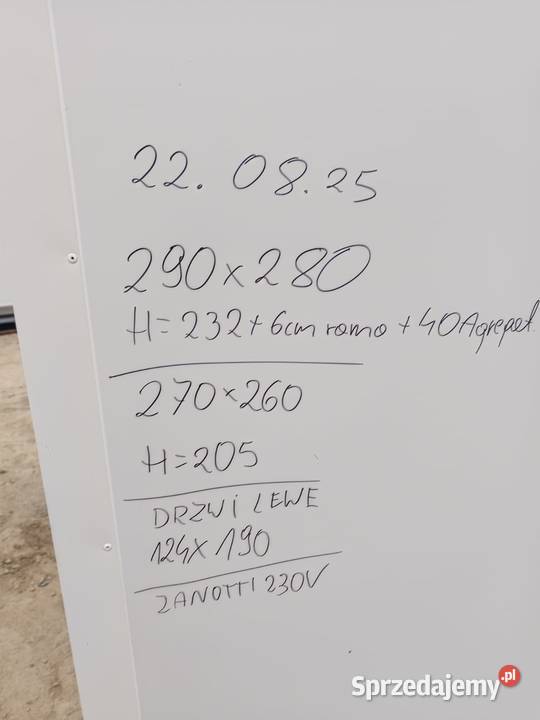 22.08.25
290x280
H=232+6cm rama+40Agregat
270x260
H=205
DRZWI LEWE
124X190
ZANOTTI 230V
Sprzedajemy.pl